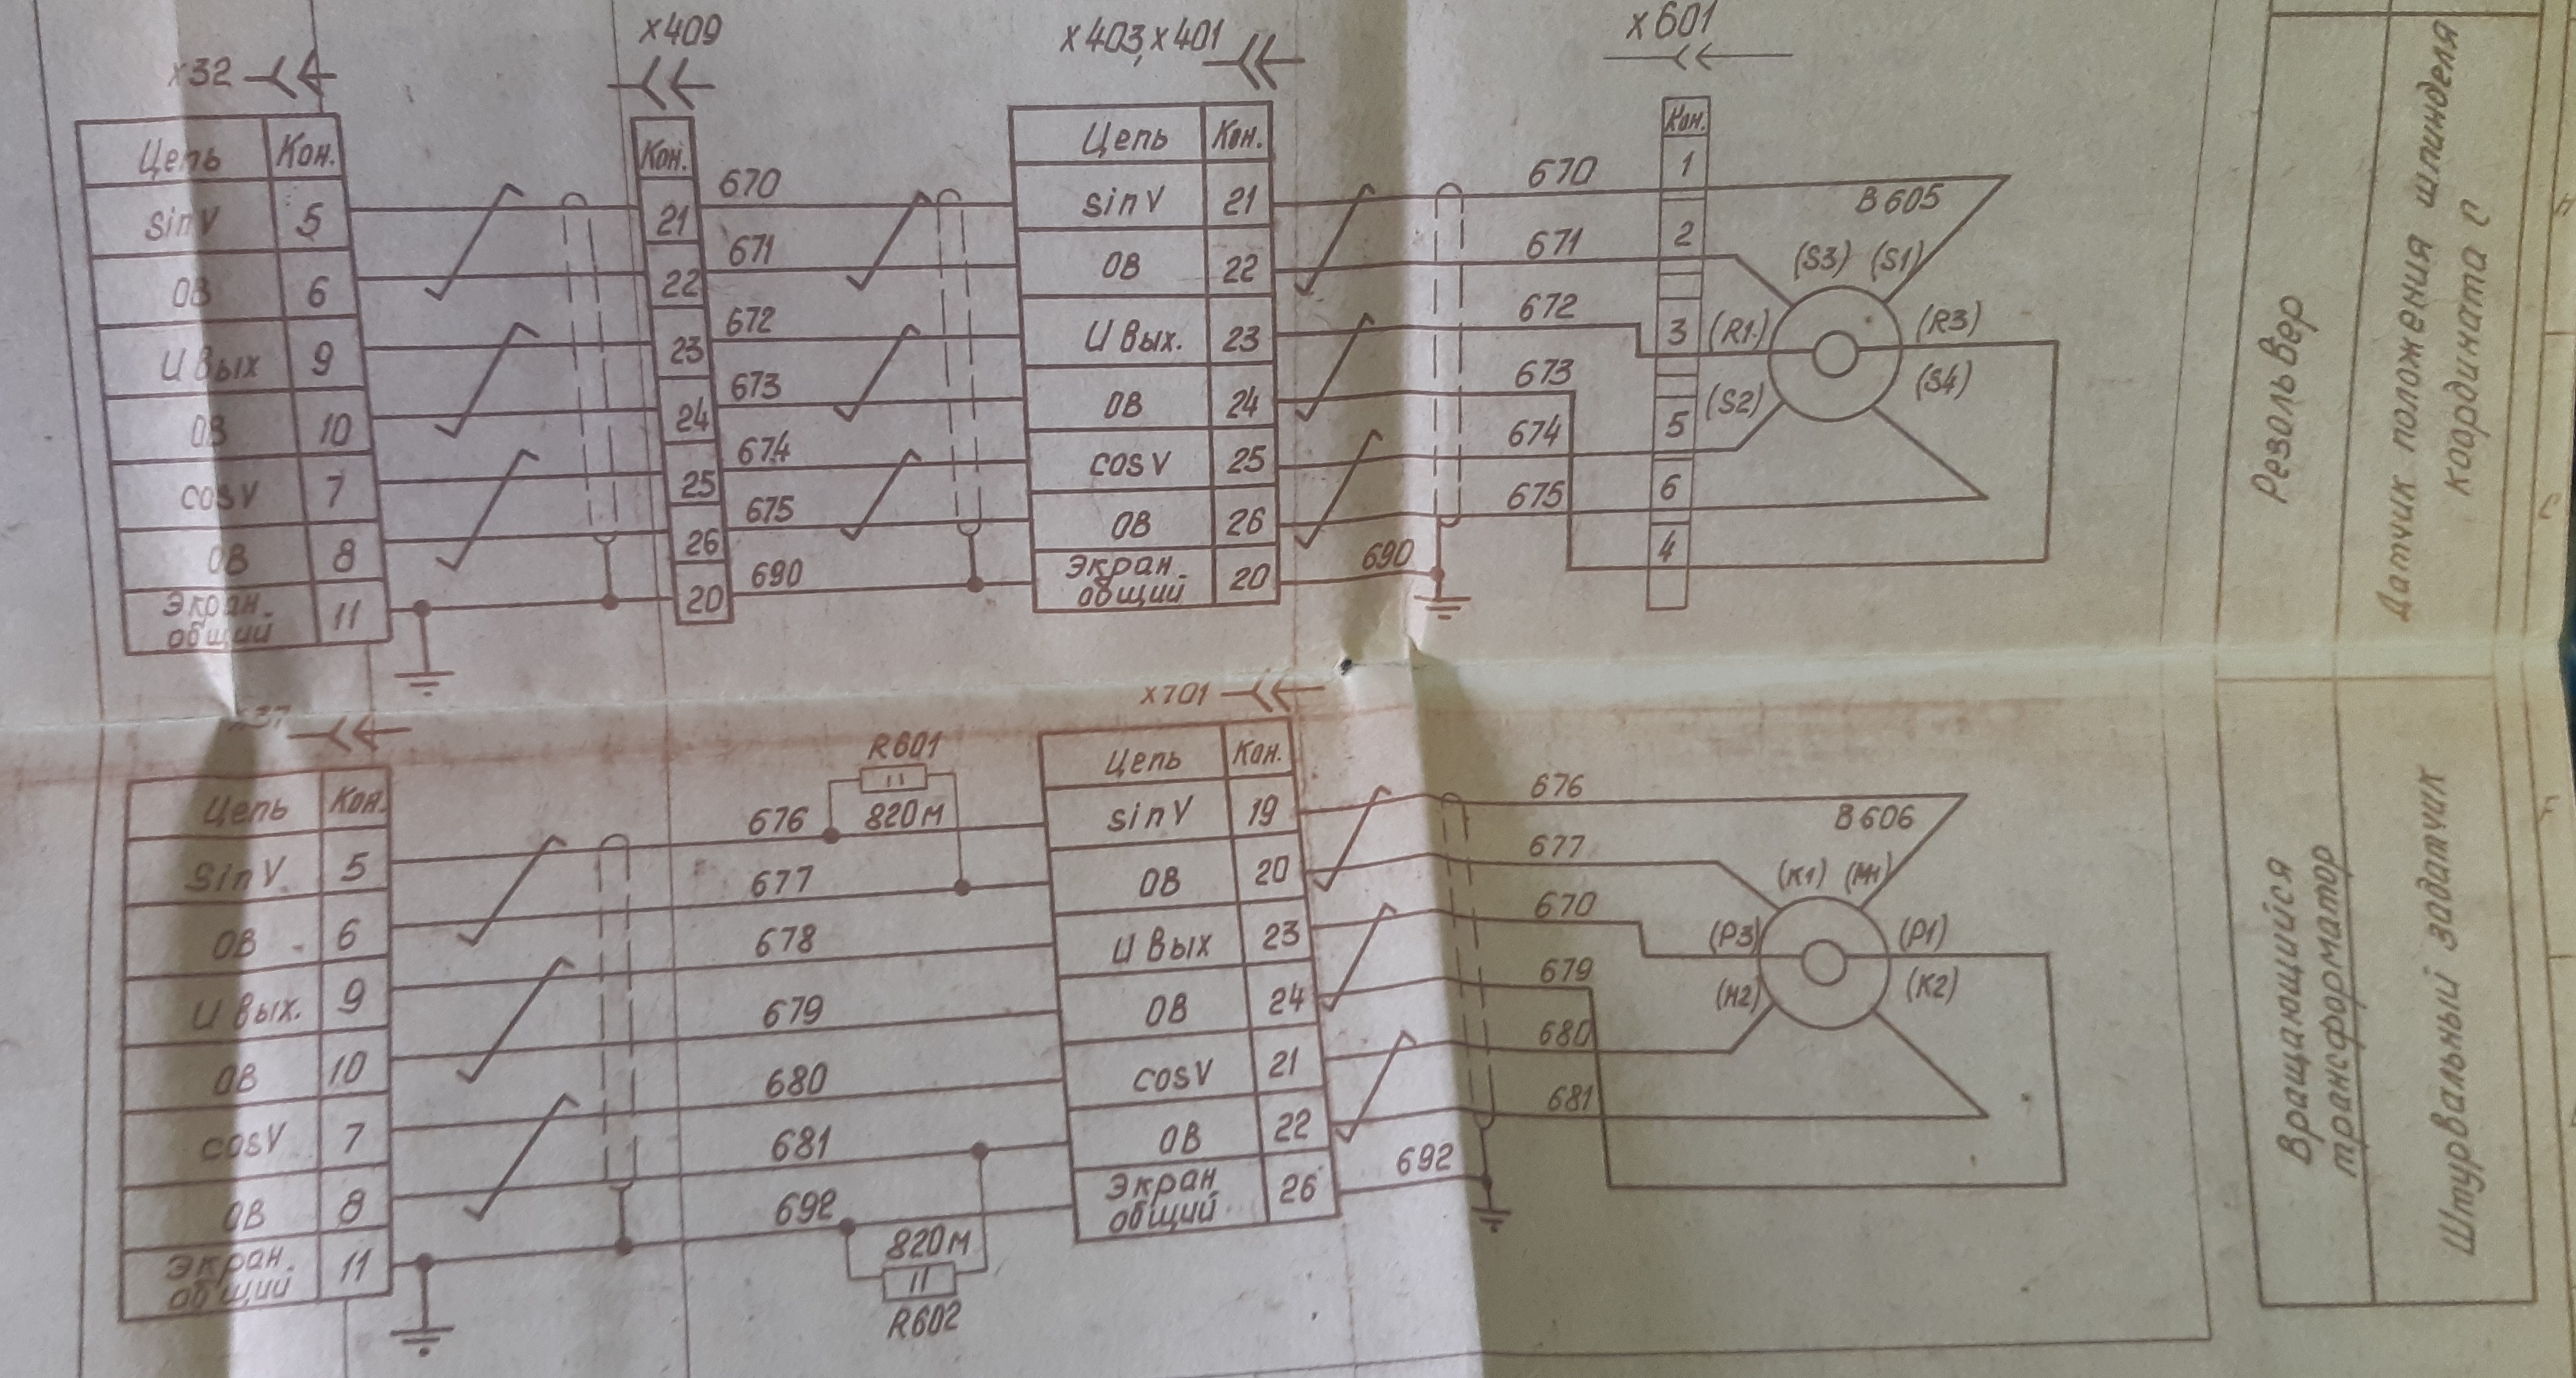 х32
х409
х403, х401
х601
Цепь Кон.
sinV 5
ОВ 6
U вых 9
ОВ 10
cosV 7
ОВ 8
Экран. общий 11
Кон.
21
22
23
24
25
26
20
670
671
672
673
674
675
690
Цепь Кон.
sinV 21
ОВ 22
U вых. 23
ОВ 24
cosV 25
ОВ 26
Экран. общий 20
670
671
672
673
674
675
690
Кон.
1
2
3
5
6
4
В605
(S3) (S1)
(R1) (R3)
(S2) (S4)
Резольвер
Датчик положения шпинделя
координата С
х701
Цепь Кон.
SinV 5
ОВ 6
U вых. 9
ОВ 10
cosV 7
ОВ 8
Экран. общий 11
R601
820м
676
677
678
679
680
681
692
820м
R602
Цепь Кон.
sinV 19
ОВ 20
U вых 23
ОВ 24
cosV 21
ОВ 22
Экран общий 26
676
677
670
679
680
681
692
В606
(К1)
(Р3) (Р1)
(К2)
Вращающийся
трансформатор
Штурвальный задатчик